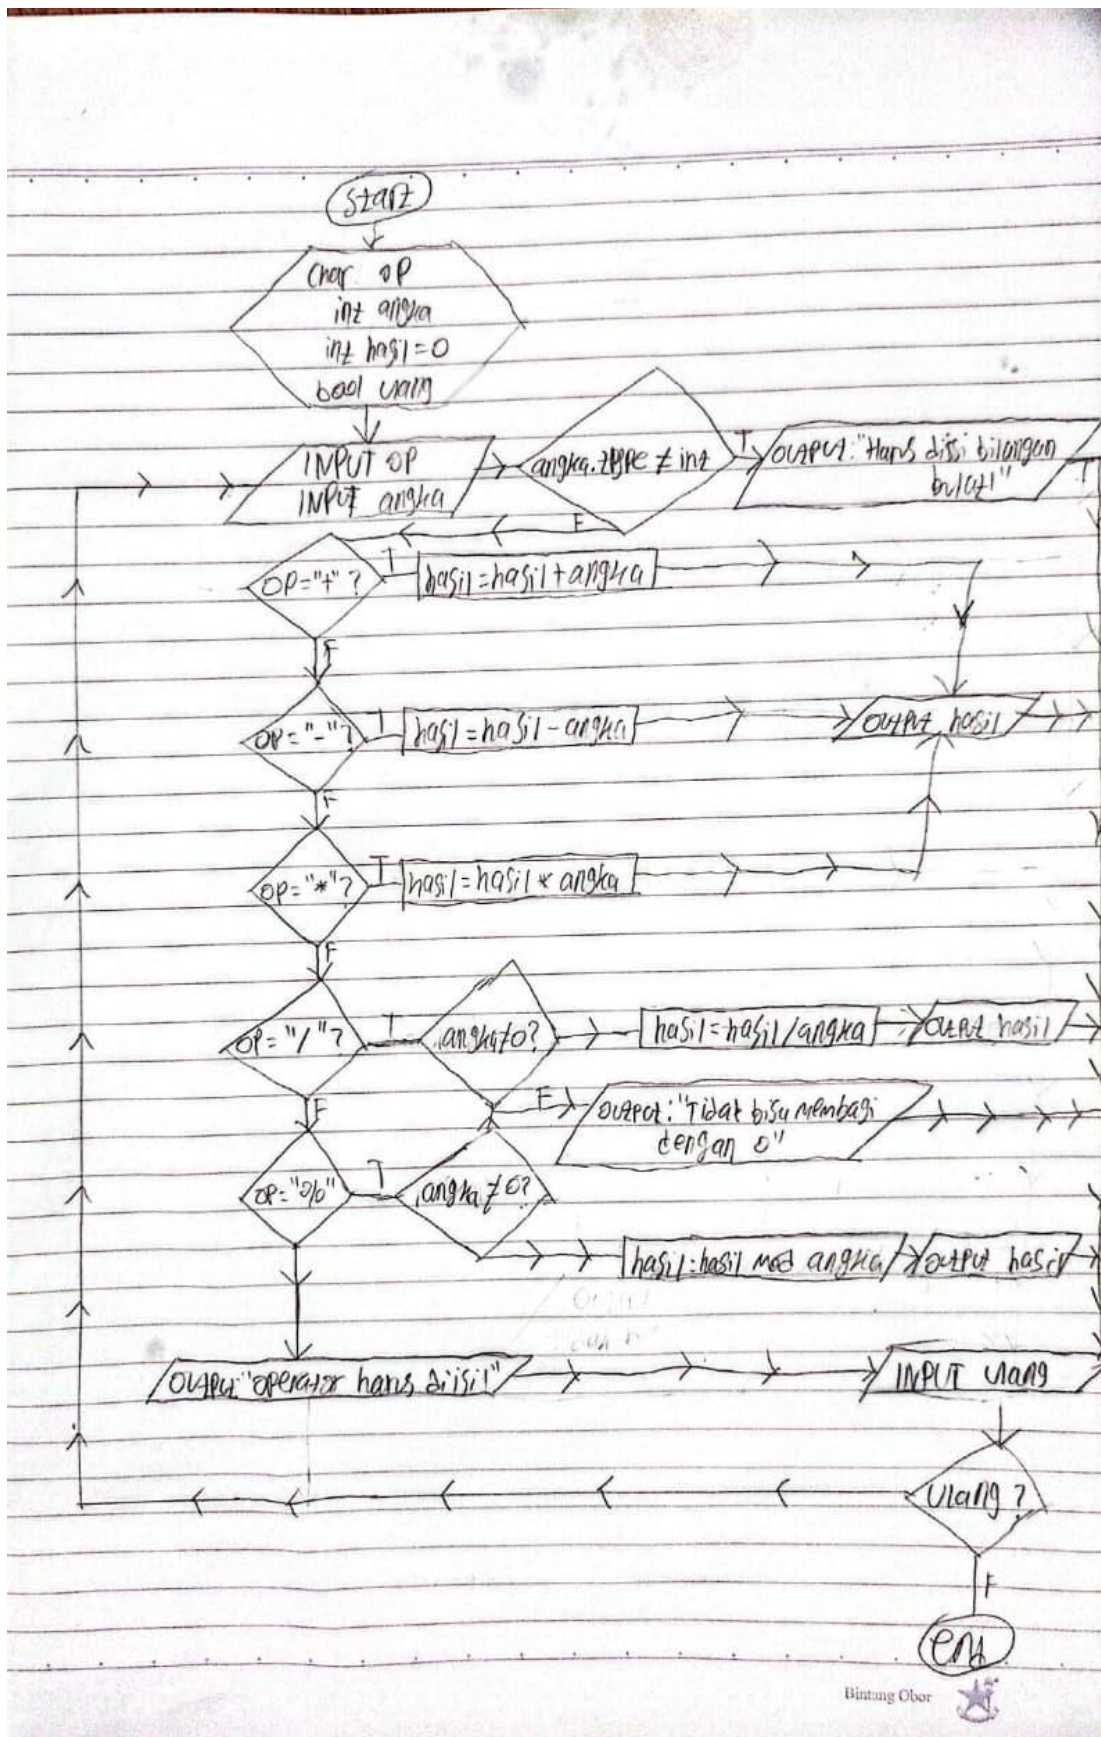 Start
Char OP
int angka
int hasil=0
bool ulang
INPUT OP
INPUT angka
angka.type ≠ int
T
OUTPUT:"Harus diisi bilangan
bulat"
F
OP="+"?
T
hasil=hasil+angka
F
OP="-"?
T
hasil=hasil-angka
OUTPUT hasil
F
OP="*"?
T
hasil=hasil * angka
F
OP="/"?
T
angka≠0?
hasil=hasil/angka
OUTPUT hasil
F
F
OUTPUT:"Tidak bisa membagi
dengan 0"
OP="%"
T
angka≠0?
hasil=hasil mod angka
OUTPUT hasil
OUTPUT"operator harus diisi!"
INPUT ulang
ulang?
F
end
Bintang Obor